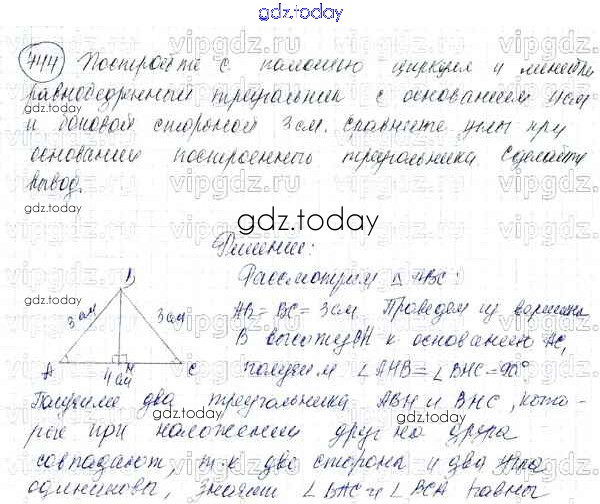 gdz.today
444 Постройте с помощью циркуля и линейки
равнобедренный треугольник с основанием 4 см
и боковой стороной 3 см. Сравните углы при
основании построенного треугольника. Сделайте
вывод.
gdz.today
Решение:
Рассмотрим △ ABC:
AB = BC = 3 см. Проведем из вершины
B высоту BH к основанию AC,
получим ∠ AHB = ∠ BHC = 90°
B
3 см
3 см
A
H
C
4 см
Получим два треугольника ABH и BHC, кото-
рые при наложении друг на друга
совпадают, т.к две стороны и два угла
одинаковы, значит ∠ BAC и ∠ BCA равны
gdz.today
gdz.today
gdz.today
gdz.today
gdz.today
gdz.today
gdz.today
vipgdz.ru